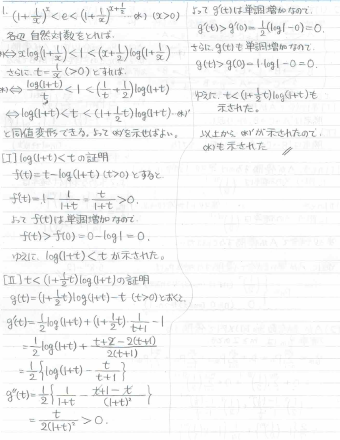 1. (1+1/x)^x < e < (1+1/x)^(x+1/2) …(*) (x>0)
各辺自然対数をとれば、
(*)⇔ xlog(1+1/x) < 1 < (x+1/2)log(1+1/x)
さらに t=1/x (>0) とすれば、
(*)⇔ log(1+t)/t < 1 < (1/t+1/2)log(1+t)
⇔ log(1+t) < t < (1+1/2t)log(1+t) …(*)'
と同値変形できる。よって(*)'を示せばよい。
[I] log(1+t)<tの証明
f(t)=t-log(1+t) (t>0)とすると
f'(t)=1-1/(1+t)=t/(1+t)>0.
よって f(t)は単調増加なので
f(t)>f(0)=0-log1=0.
ゆえに log(1+t)<t が示された。
[II] t<(1+1/2t)log(1+t)の証明
g(t)=(1+1/2t)log(1+t)-t (t>0)とおく。
g'(t)=1/2log(1+t)+(1+1/2t)・1/(t+1)-1
=1/2log(1+t)+(t+2-2(t+1))/(2(t+1))
=1/2{log(1+t)-t/(t+1)}
g''(t)=1/2{1/(1+t)-(t+1-t)/(1+t)²}
=t/(2(1+t)²)>0.
よって g'(t)は単調増加なので、
g'(t)>g'(0)=1/2(log1-0)=0.
さらに g(t)も単調増加なので、
g(t)>g(0)=1・log1-0=0.
ゆえに、t<(1+1/2t)log(1+t)も
示された。
以上から(*)'が示されたので、
(*)も示された